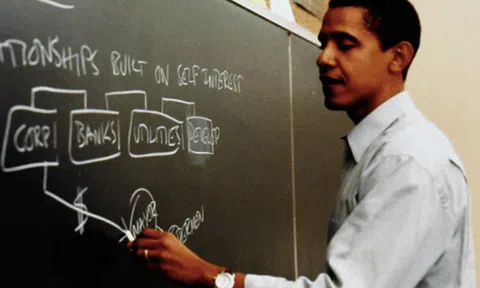 ATIONSHIPS BUILT ON SELF INTEREST
CORP BANKS UTILITIES DEVELOP
$ MAYOR